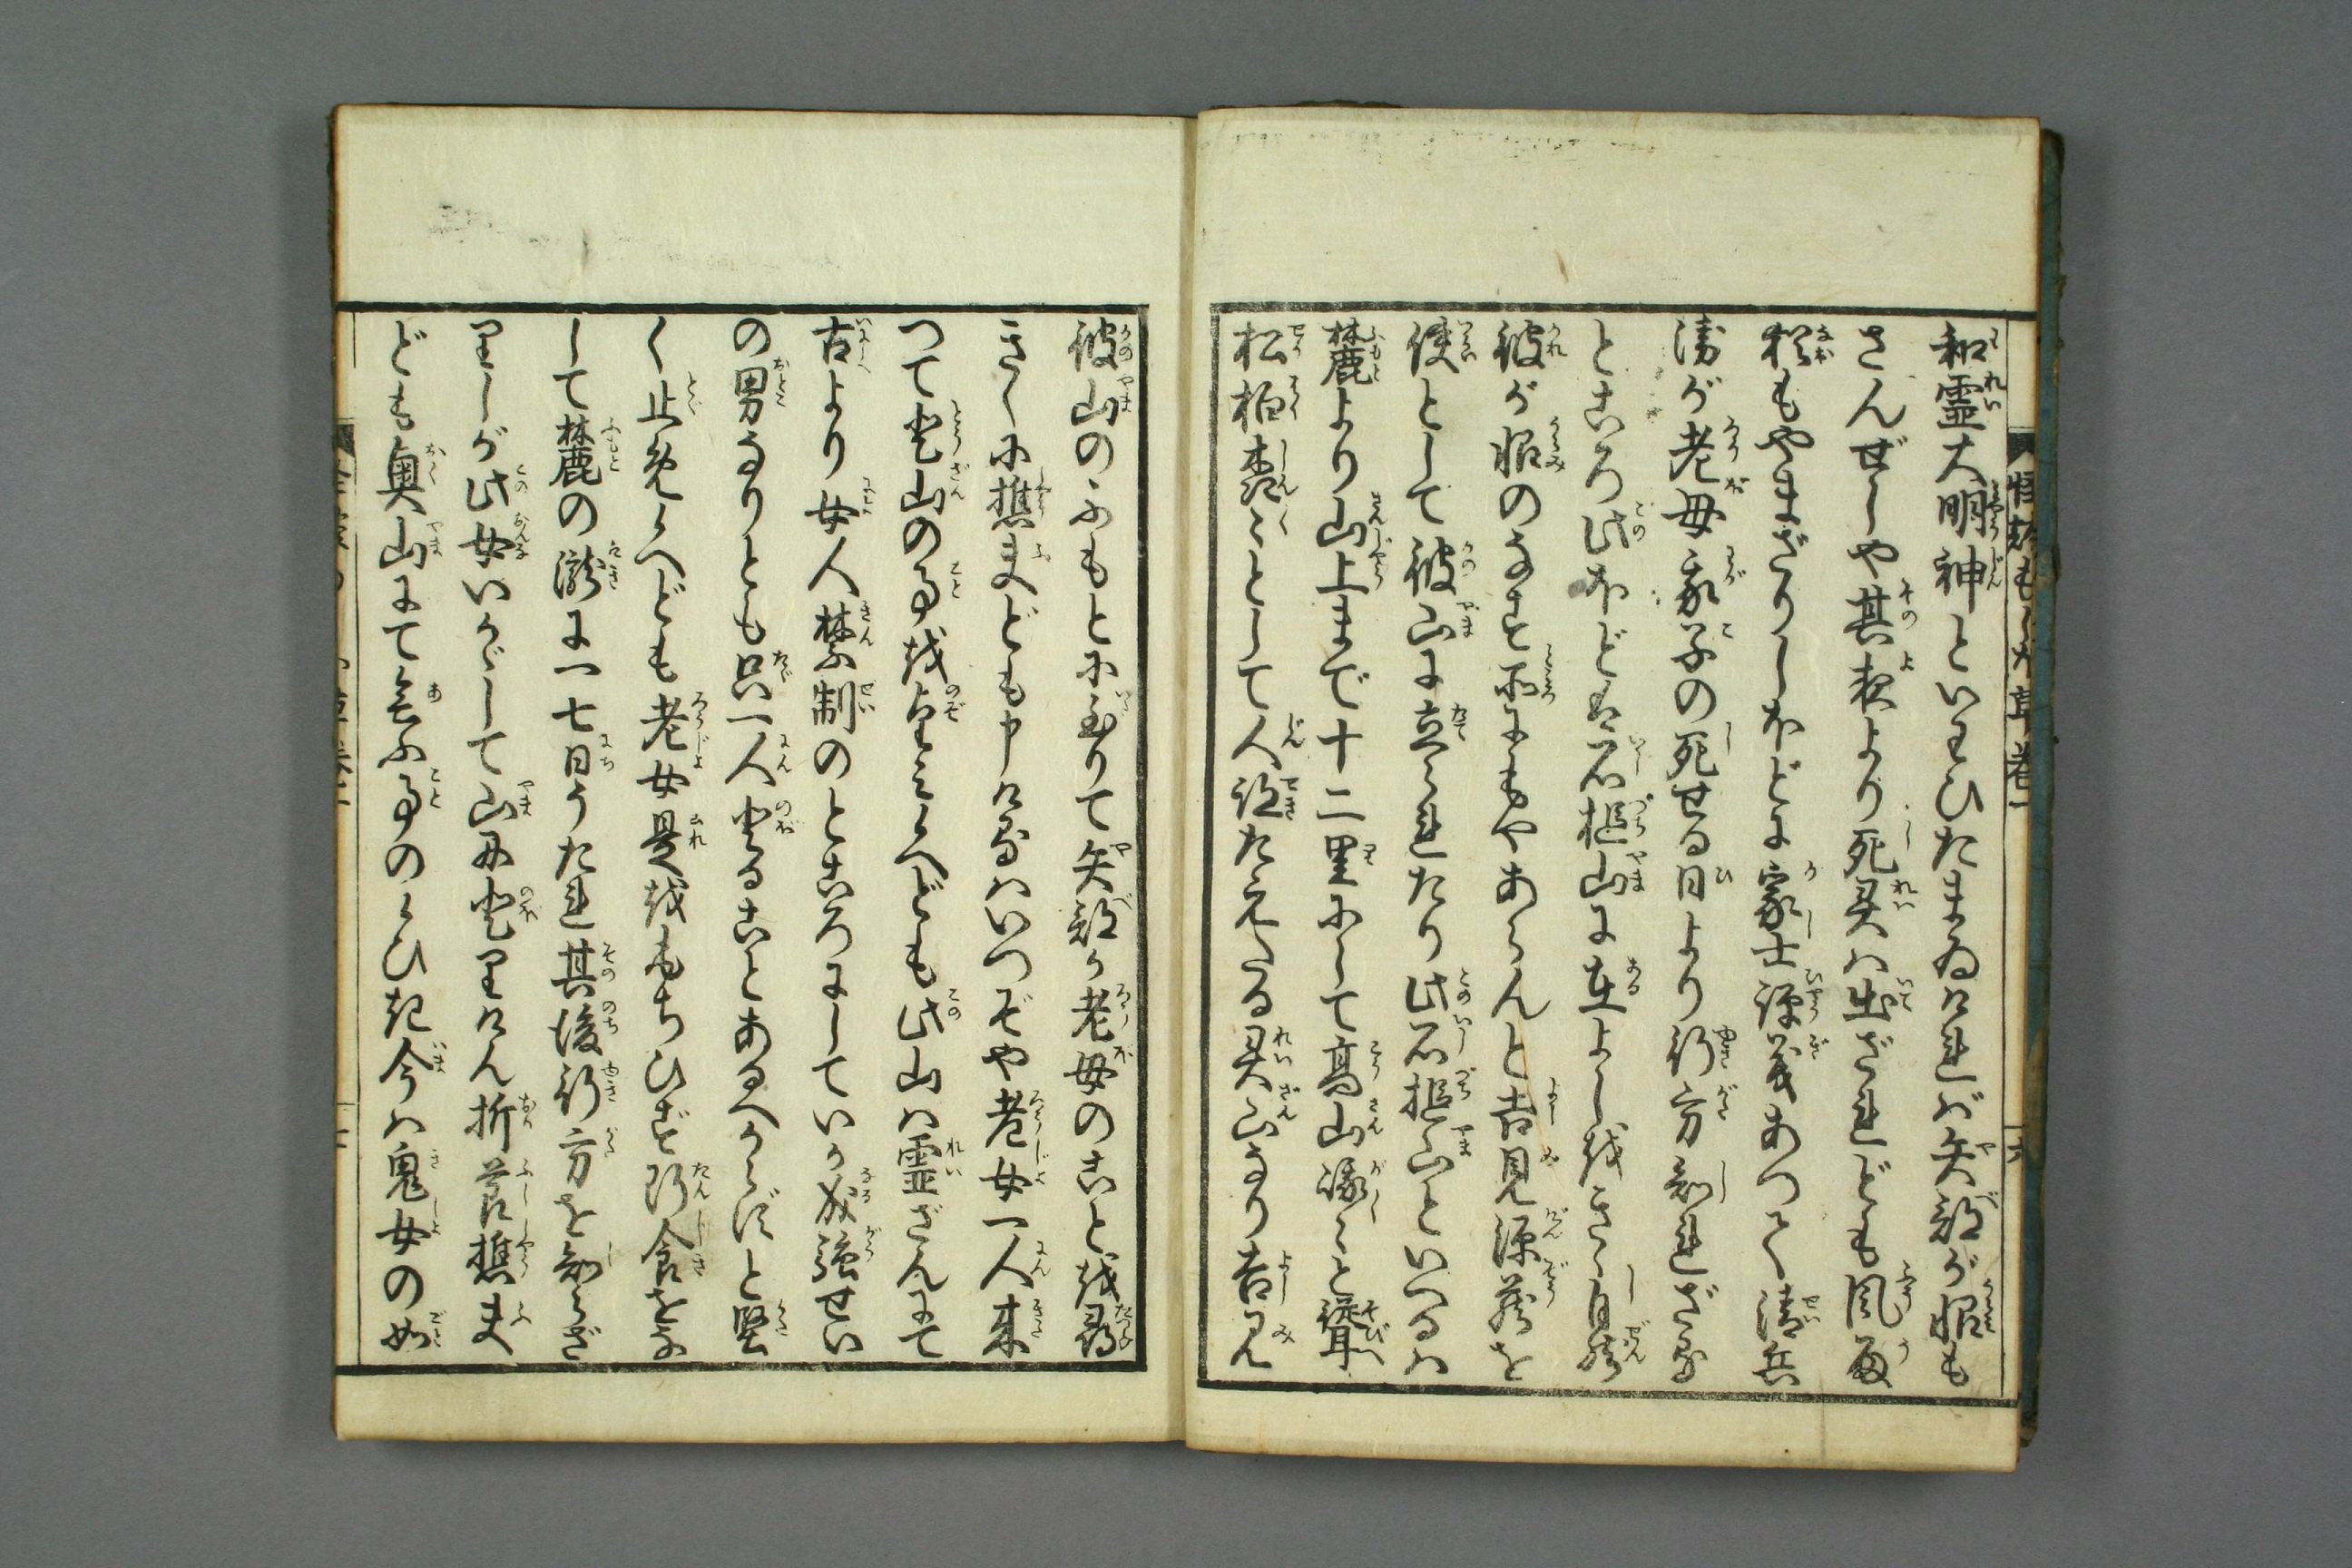 和霊大明神といわひたまゐければ矢部が恨も
さんぜしや其夜より死灵は出ざれども風雨
猶もやまざりしかどに家士評義あつて清兵
衛が老母我子の死せる日より行方知れざる
ところ此ほど石槌山に在よしをきゝ自然
彼が恨のなす所にもやあらんと吉見源蔵を
使として彼山に立られたり此石槌山といへるは
麓より山上まで十二里にして高山峨〻と聳へ
松柏森〻として人迹たえたる灵山なり吉見
彼山のふもとに至りて矢部が老母のことを尋
きくに樵夫ども申けるはいつぞや老女一人来
つて登山の事を望み候へども此山は霊ざんにて
古より女人禁制のところにしていか成強せい
の男なりとも只一人登ることあるべからずと堅
く止め候へども老女是をもちひず断食をな
して麓の瀧に一七日うたれ其後行方を知らざ
りしが此女いかゞして山に登りけん折節樵夫
ども奥山にて逢ふ事の候ひき今は鬼女の如